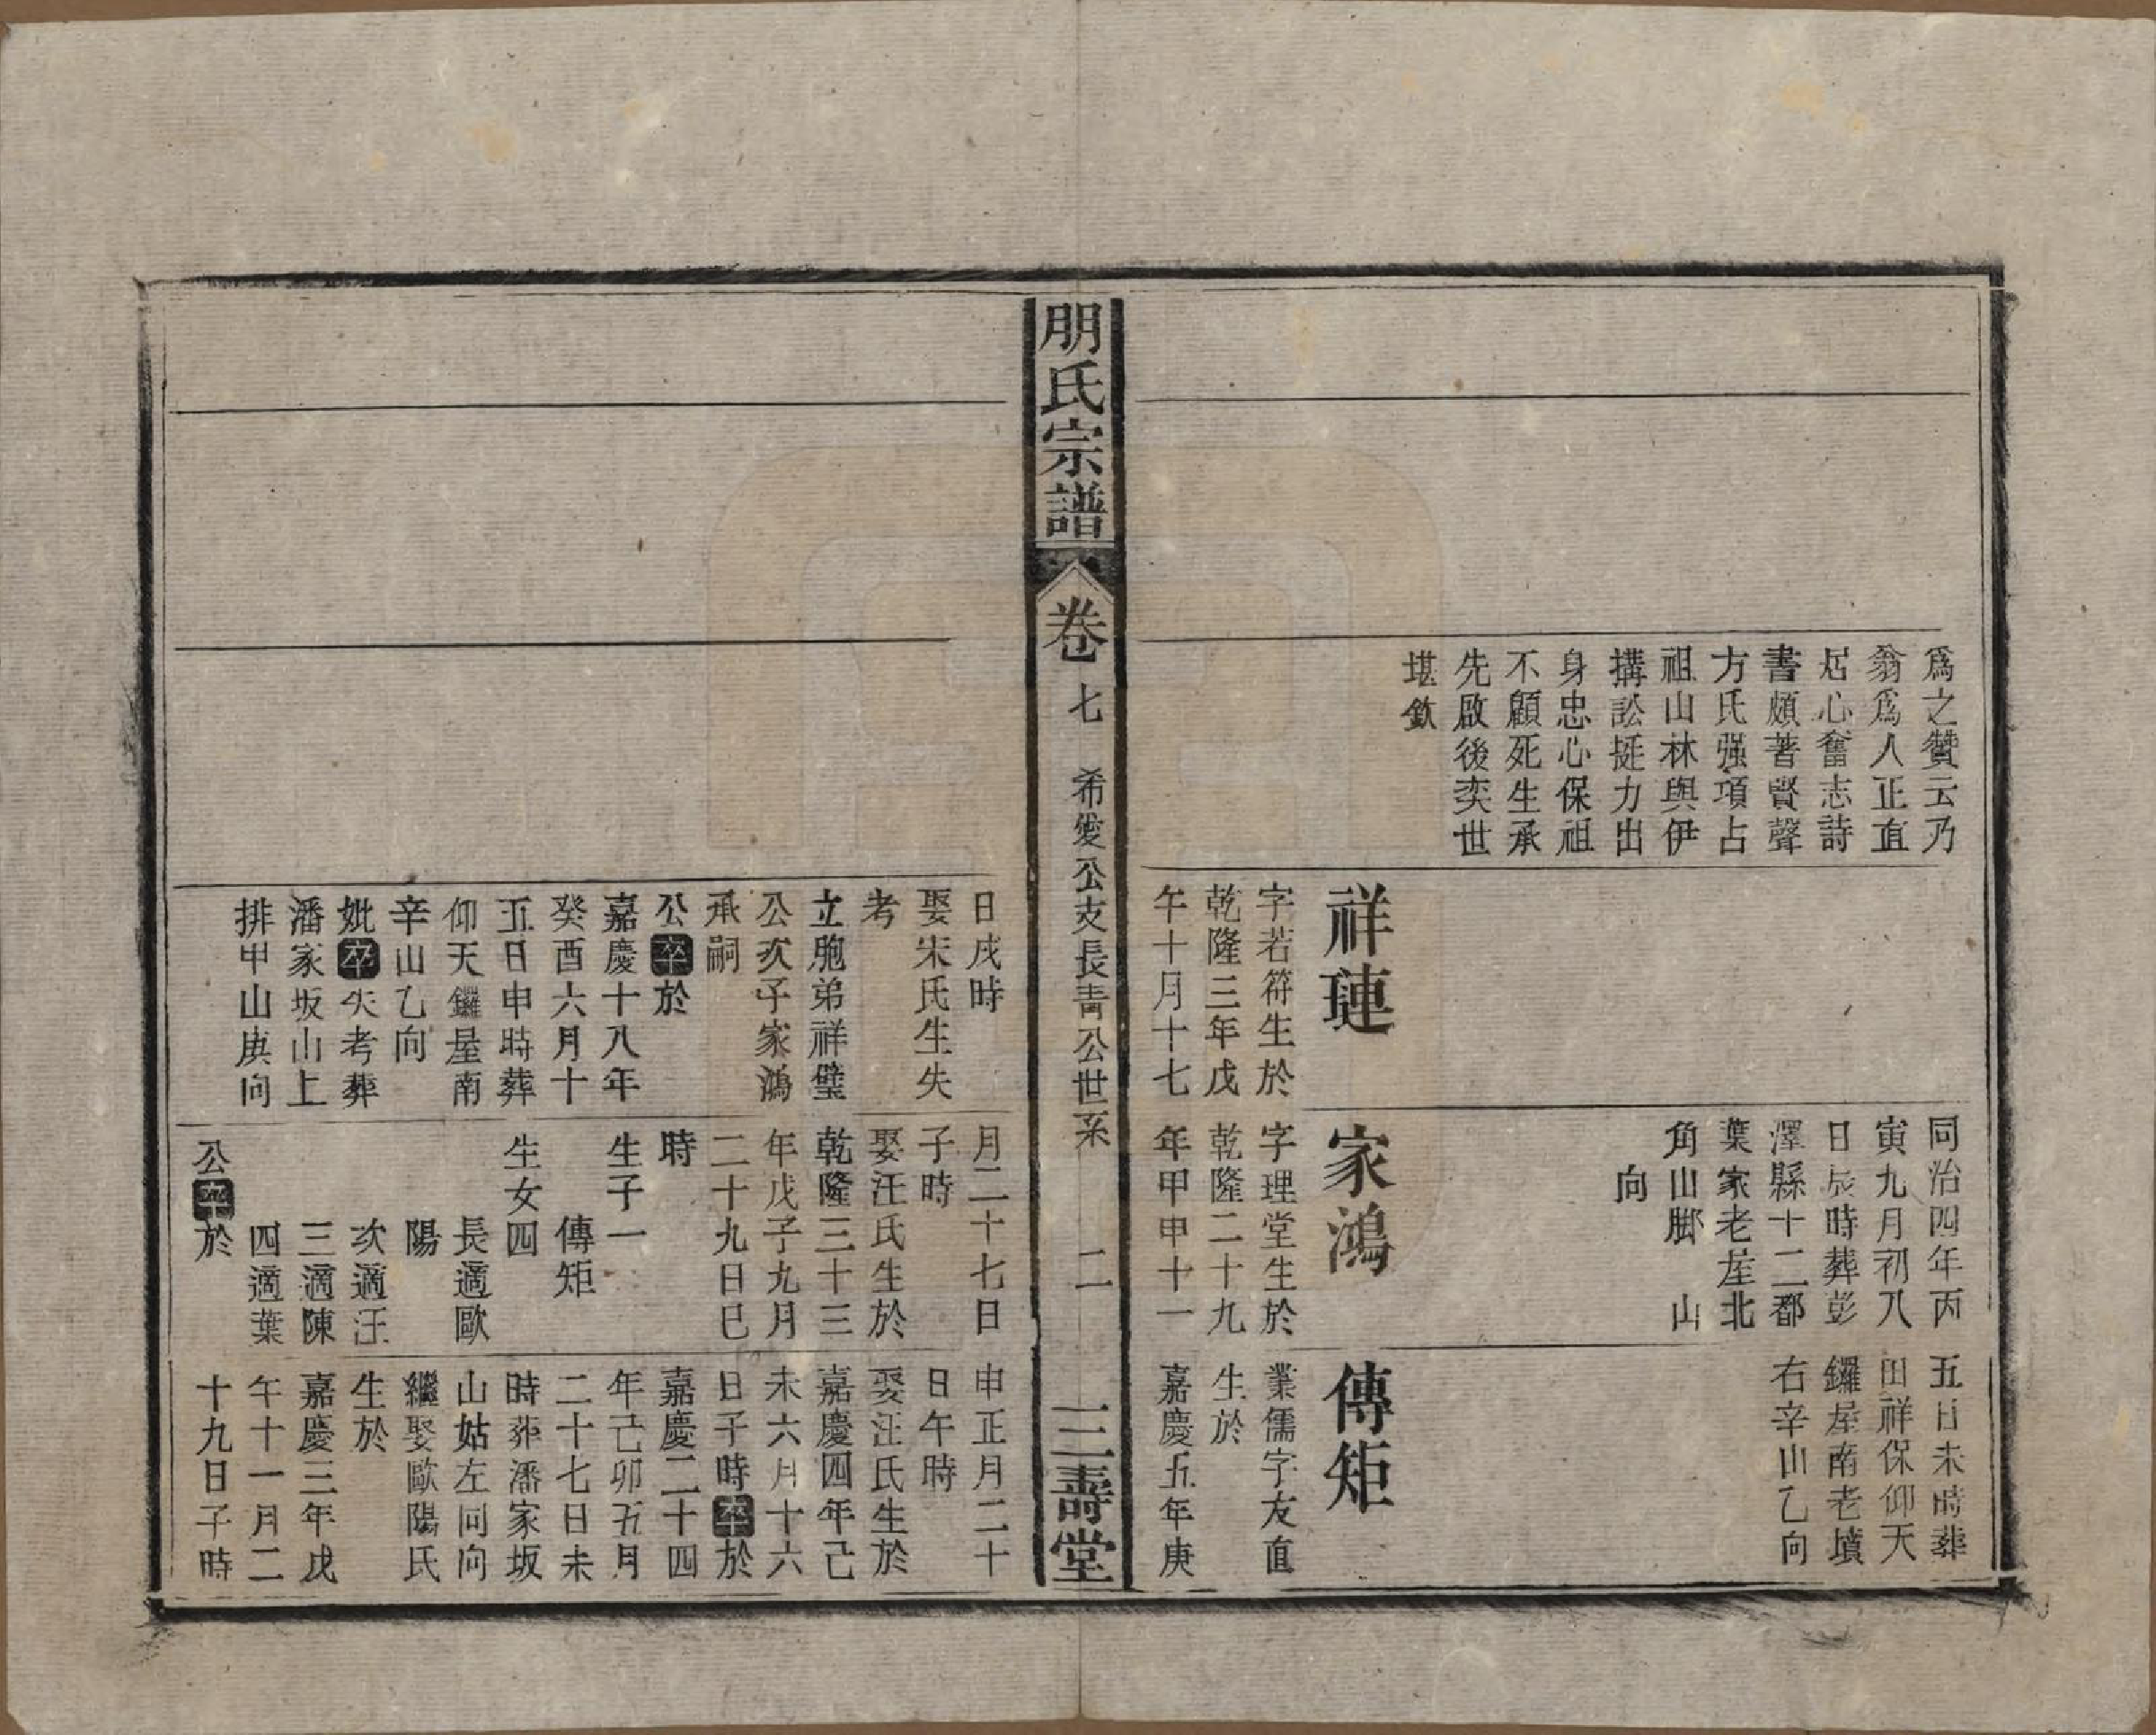 爲之贊云乃
翁爲人正直
居心奮志詩
書頗著賢聲
方氏强項占
祖山林與伊
搆訟挺力出
身忠心保祖
不顧死生承
先啟後奕世
堪欽
祥璉
字若符生於
乾隆三年戊
午十月十七
同治四年丙
寅九月初八
日辰時葬彭
澤縣十二都
葉家老屋北
角山脚　山
向
家鴻
字理堂生於
乾隆二十九
年甲申十一
五日未時葬
田祥保仰天
鑼屋南老墳
右辛山乙向
傳矩
業儒字友直
生於
嘉慶五年庚
朋氏宗譜
卷七
希發公支長青公世系
二
三壽堂
日戌時
娶宋氏生失
考
立胞弟祥璧
公次子家鴻
承嗣
公卒於
嘉慶十八年
癸酉六月十
五日申時葬
仰天鑼屋南
辛山乙向
妣卒失考葬
潘家坂山上
排甲山庚向
月二十七日
子時
娶汪氏生於
乾隆三十三
年戊子九月
二十九日巳
時
生子一
傳矩
生女四
長適歐
陽
次適汪
三適陳
四適葉
公卒於
申正月二十
日午時
娶汪氏生於
嘉慶四年己
未六月十六
日子時卒於
嘉慶二十四
年己卯五月
二十七日未
時葬潘家坂
山姑左同向
繼娶歐陽氏
生於
嘉慶三年戊
午十一月二
十九日子時